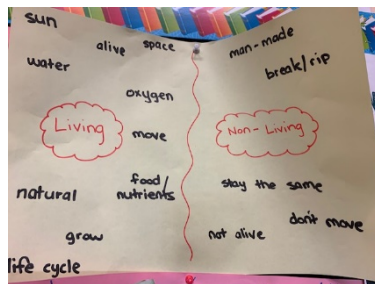 sun
alive
space
water
oxygen
Living
move
natural
food/
nutrients
grow
life cycle
man-made
break/rip
Non-Living
stay the same
don't move
not alive